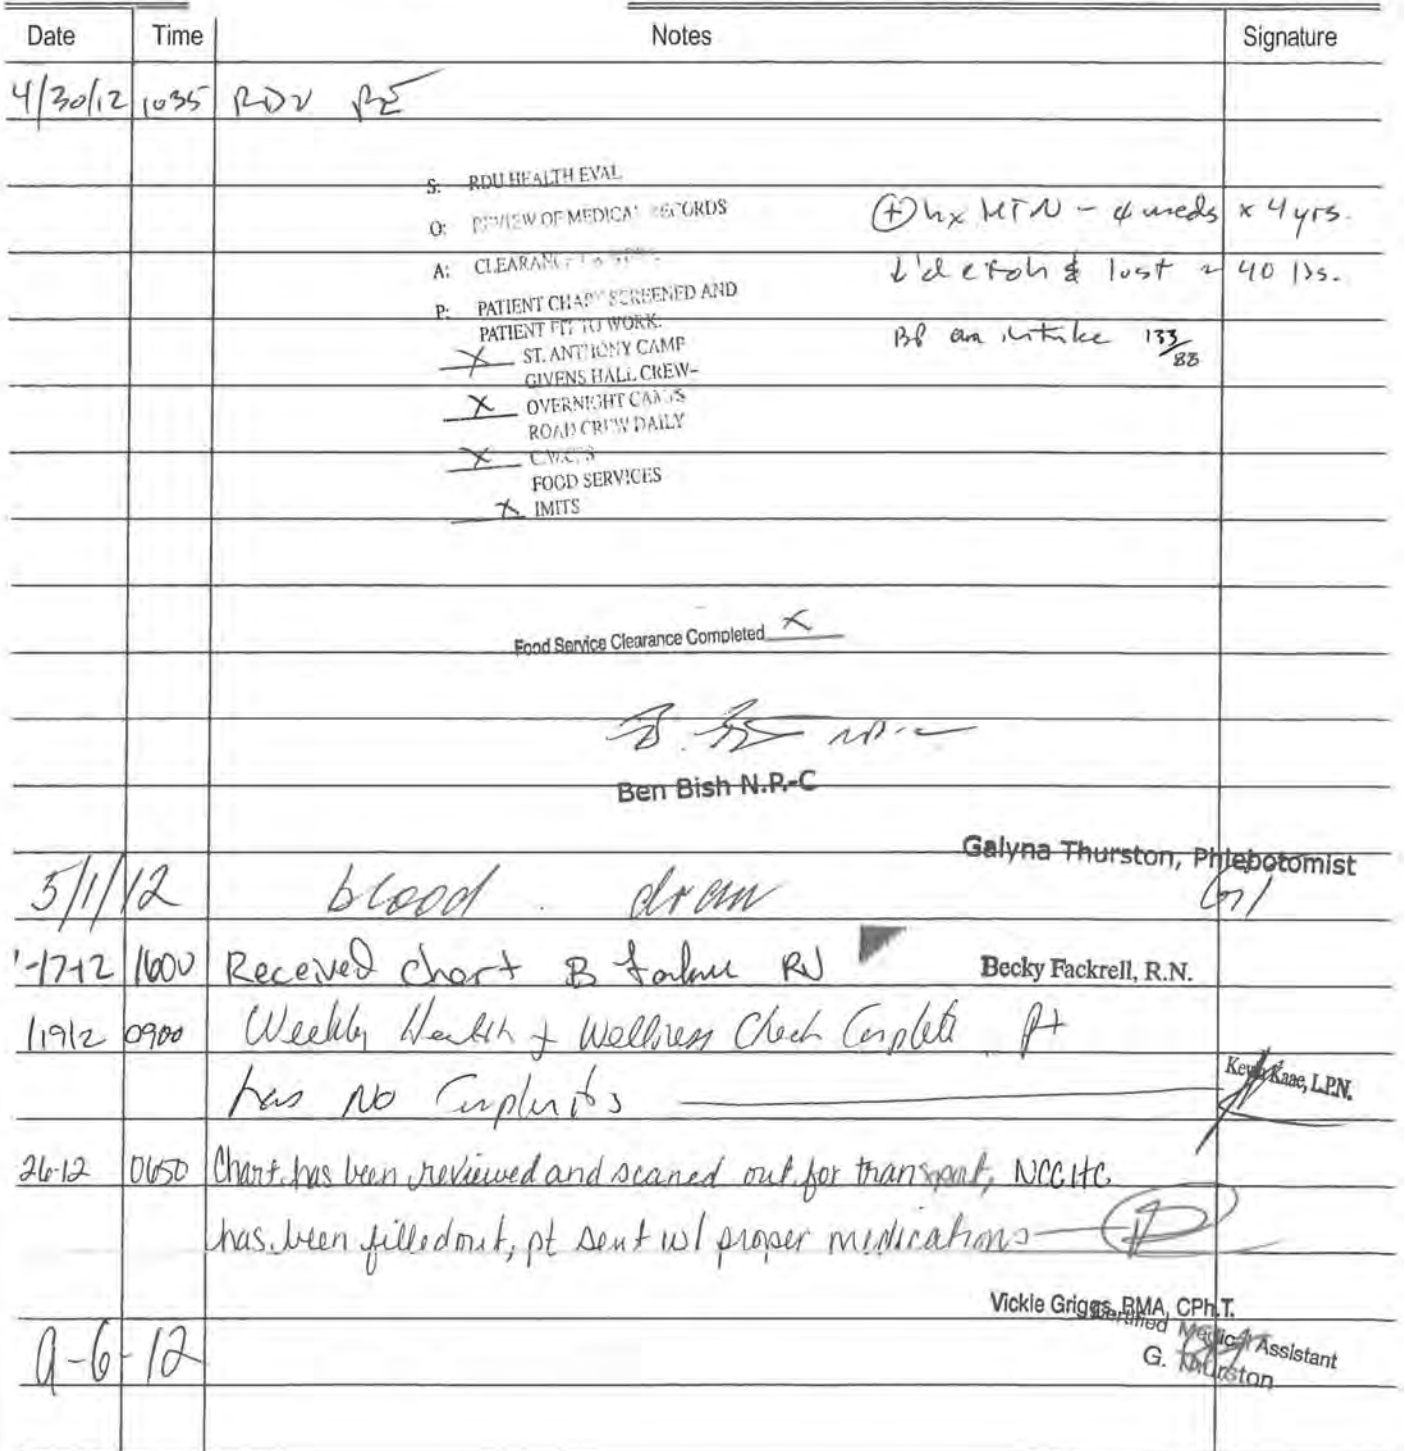 Date Time Notes Signature
4/30/12 1035 RDU PE
S: RDU HEALTH EVAL
O: REVIEW OF MEDICAL RECORDS
⊕ hx HTN - φ meds x 4 yrs.
A: CLEARANCE
↓'d etoh & lost ~ 40 lbs.
P: PATIENT CHART SCREENED AND
PATIENT FIT TO WORK:
BP on intake 133/88
X ST. ANTHONY CAMP
GIVENS HALL CREW-
X OVERNIGHT CAMPS
ROAD CREW DAILY
X C.W.C.'S
FOOD SERVICES
X IMITS
Food Service Clearance Completed X
NP-C
Ben Bish N.P.-C
Galyna Thurston, Phlebotomist
5/1/12 blood draw GT
-17-12 1600 Received chart B RN Becky Fackrell, R.N.
/19/2 0900 Weekly Health + Wellness Check Complete Pt
has No Complaints Kevin Kaae, L.P.N.
26-12 0650 Chart has been reviewed and scaned out for transport, NCCHC
has been filled out, pt sent w/ proper medications
Vickie Griggs, RMA, CPh.T.
Certified Medical Assistant
9-6-12 G. Thurston